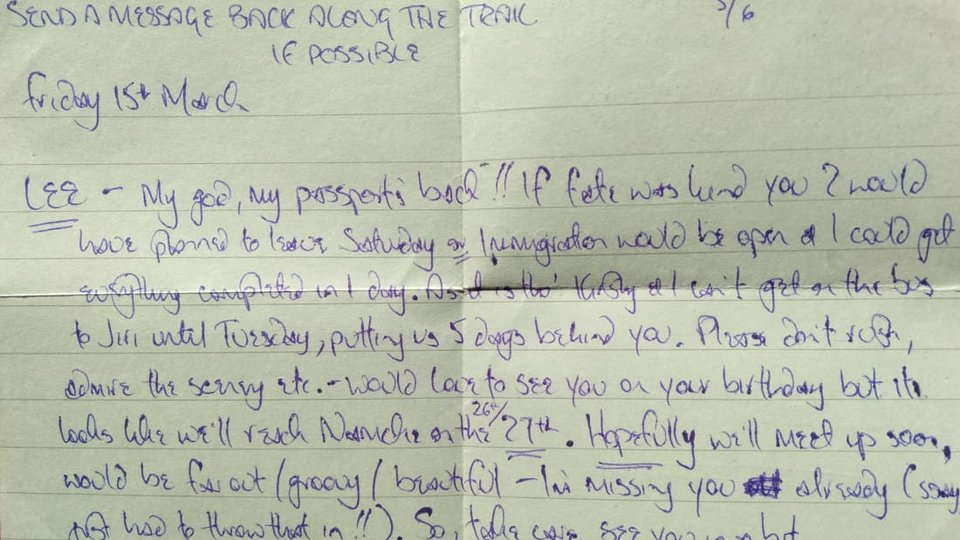 SEND A MESSAGE BACK ALONG THE TRAIL 5/6
IF POSSIBLE
Friday 15th March
LEE - My god, my passport's back!! If fate was kind you would
have planned to leave Saturday or Immigration would be open & I could get
everything completed in 1 day. As it is tho' & I can't get on the bus
to Jiri until Tuesday, putting us 5 days behind you. Please don't rush,
admire the scenery etc. - would love to see you on your birthday but it
looks like we'll reach Namche on the 26th/27th. Hopefully we'll meet up soon,
would be far out/groovy/beautiful - I'm missing you already (sorry
just had to throw that in!!). So, take care, see you in a bit